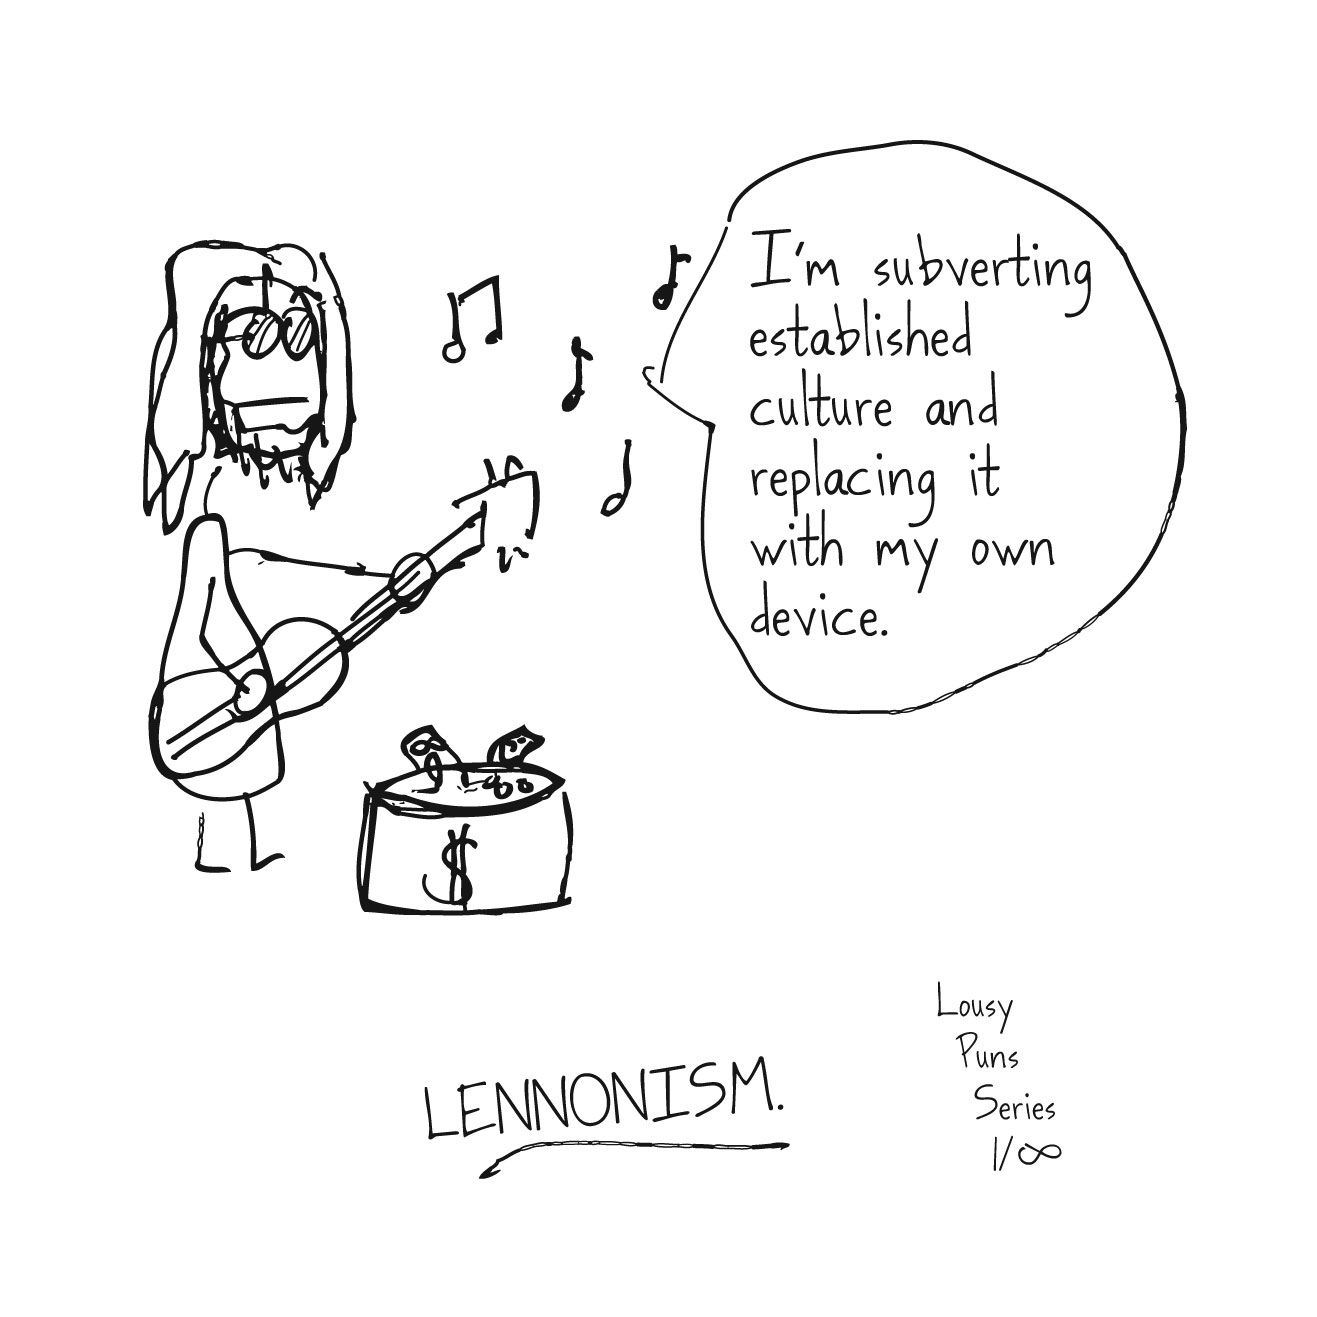 I'm subverting
established
culture and
replacing it
with my own
device.
$
LENNONISM.
Lousy
Puns
Series
1/∞